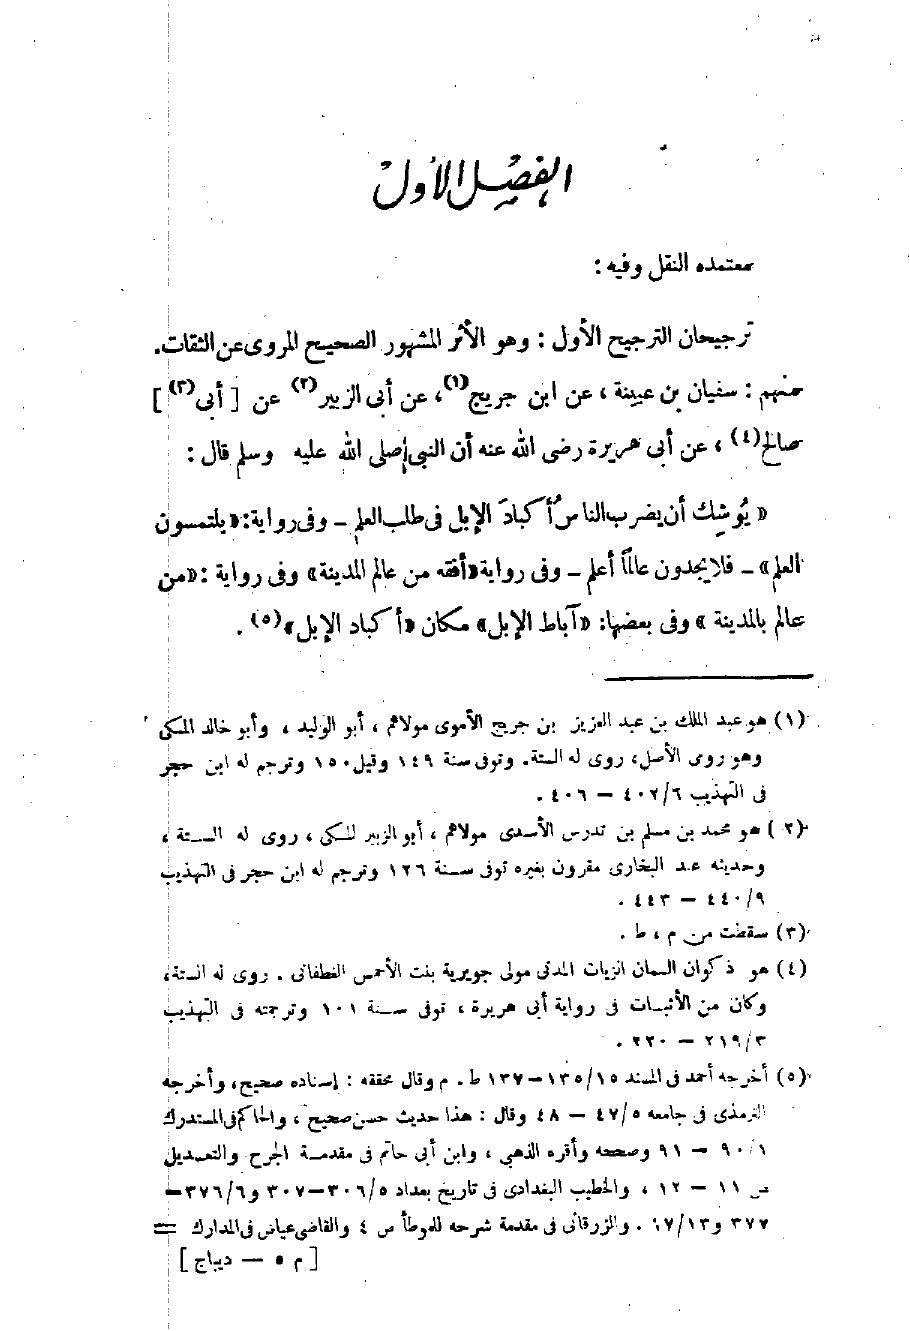 الفصل الأول
معتمده النقل وفيه :
ترجيحان الترجيح الأول : وهو الأثر المشهور الصحيح المروى عن الثقات.
منهم : سفيان بن عيينة ، عن ابن جريج(١)، عن أبى الزبير(٢) عن [ أبى(٣) ]
صالح(٤) ، عن أبى هريرة رضى الله عنه أن النبى صلى الله عليه وسلم قال :
« يُوشِك أن يضرب الناسُ أكبادَ الإبل فى طلب العلم ــ وفى رواية: «يلتمسون
العلم» ــ فلا يجدون عالمًا أعلم ــ وفى رواية «أفقه من عالم المدينة» وفى رواية : «من
عالم بالمدينة » وفى بعضها: «آباط الإبل» مكان «أكباد الإبل»(٥) .
(١) هو عبد الملك بن عبد العزيز بن جريج الأموى مولاهم ، أبو الوليد ، وأبو خالد المكى
وهو رومى الأصل، روى له الستة. وتوفى سنة ١٤٩ وقيل ١٥٠ وترجم له ابن حجر
فى التهذيب ٤٠٢/٦ – ٤٠٦ .
(٢) هو محمد بن مسلم بن تدرس الأسدى مولاهم ، أبو الزبير المكى ، روى له الستة ،
وحديثه عند البخارى مقرون بغيره توفى سنة ١٢٦ وترجم له ابن حجر فى التهذيب
٤٤٠/٩ – ٤٤٣ .
(٣) سقطت من م ، ط .
(٤) هو ذكوان السمان الزيات المدنى مولى جويرية بنت الأحمس الغطفانى . روى له الستة،
وكان من الأثبات فى رواية أبى هريرة ، توفى سنة ١٠١ وترجمته فى التهذيب
٢١٩/٣ – ٢٢٠ .
(٥) أخرجه أحمد فى المسند ١٣٥/١٥–١٣٧ ط. م وقال محققه : إسناده صحيح، وأخرجه
الترمذى فى جامعه ٤٧/٥ – ٤٨ وقال : هذا حديث حسن صحيح ، والحاكم فى المستدرك
٩٠/١ – ٩١ وصححه وأقره الذهبي ، وابن أبى حاتم فى مقدمة الجرح والتعديل
ص ١١ – ١٢ ، والخطيب البغدادى فى تاريخ بغداد ٣٠٦/٥–٣٠٧ و٣٧٦/٦–
٣٧٧ و١٧/١٣ . والزرقانى فى مقدمة شرحه للموطأ ص ٤ والقاضى عياض فى المدارك =
[ م ٥ – ديباج ]